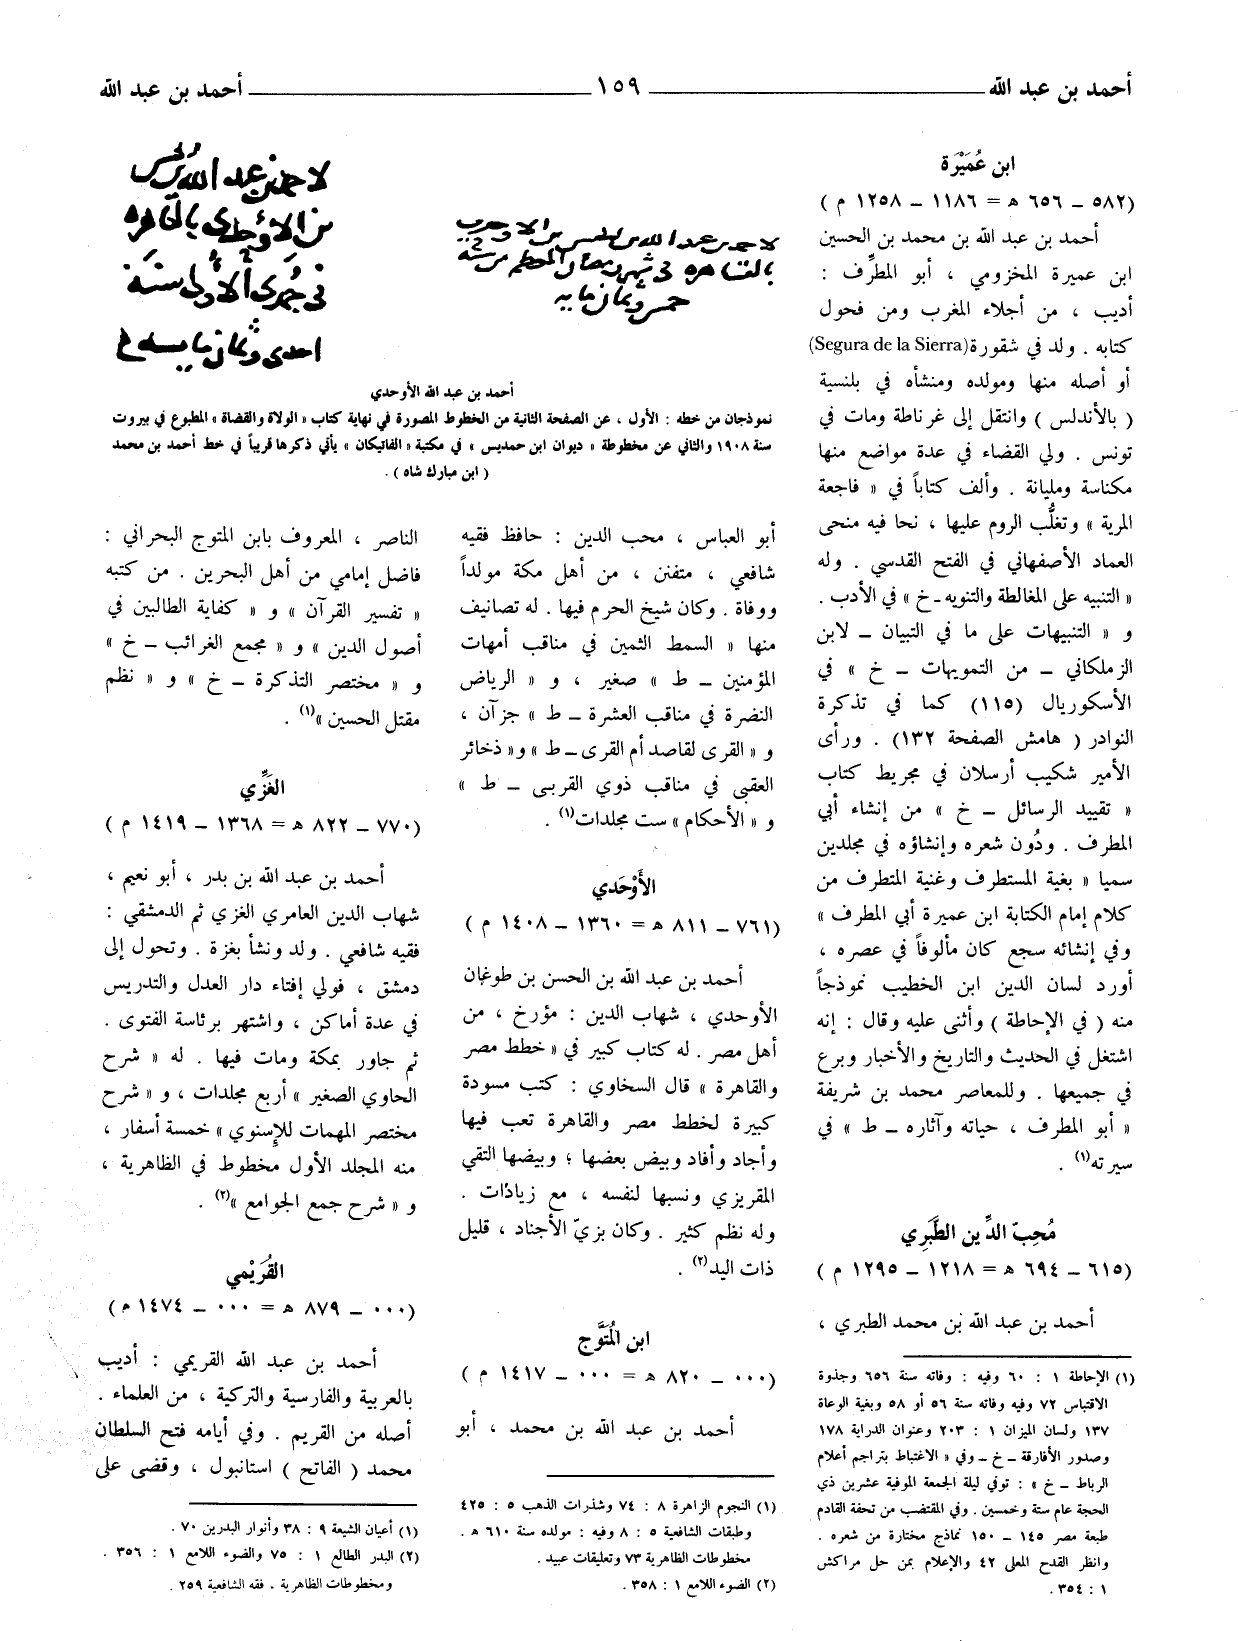 أحمد بن عبد الله ــــ ١٥٩ ــــ أحمد بن عبد الله
ابن عُمَيْرَة
(٥٨٢ ـ ٦٥٦ ه = ١١٨٦ ـ ١٢٥٨ م )
أحمد بن عبد الله بن محمد بن الحسين
ابن عميرة المخزومي ، أبو المطرِّف :
أديب ، من أجلاء المغرب ومن فحول
كتابه . ولد في شقورة(Segura de la Sierra)
أو أصله منها ومولده ومنشأه في بلنسية
( بالأندلس ) وانتقل إلى غرناطة ومات في
تونس . ولي القضاء في عدة مواضع منها
مكناسة ومليانة . وألف كتاباً في « فاجعة
المرية » وتغلُّب الروم عليها ، نحا فيه منحى
العماد الأصفهاني في الفتح القدسي . وله
« التنبيه على المغالطة والتنويه ـ خ » في الأدب .
و « التنبيهات على ما في التبيان ـ لابن
الزملكاني ـ من التمويهات ـ خ » في
الأسكوريال (١١٥) كما في تذكرة
النوادر ( هامش الصفحة ١٣٢) . ورأى
الأمير شكيب أرسلان في مجريط كتاب
« تقييد الرسائل ـ خ » من إنشاء أبي
المطرف . ودُون شعره وإنشاؤه في مجلدين
سميا « بغية المستطرف وغنية المتطرف من
كلام إمام الكتابة ابن عميرة أبي المطرف »
وفي إنشائه سجع كان مألوفاً في عصره ،
أورد لسان الدين ابن الخطيب نموذجاً
منه ( في الإحاطة ) وأثنى عليه وقال : إنه
اشتغل في الحديث والتاريخ والأخبار وبرع
في جميعها . وللمعاصر محمد بن شريفة
« أبو المطرف ، حياته وآثاره ـ ط » في
سيرته(١) .
مُحِبّ الدِّين الطَّبَرِي
(٦١٥ ـ ٦٩٤ ه = ١٢١٨ ـ ١٢٩٥ م )
أحمد بن عبد الله بن محمد الطبري ،
(١) الإحاطة ١ : ٦٠ وفيه : وفاته سنة ٦٥٦ وجذوة
الاقتباس ٧٢ وفيه وفاته سنة ٥٦ أو ٥٨ وبغية الوعاة
١٣٧ ولسان الميزان ١ : ٢٠٣ وعنوان الدراية ١٧٨
وصدور الأفارقة ـ خ ـ وفي « الاغتباط بتراجم أعلام
الرباط ـ خ » : توفي ليلة الجمعة الموفية عشرين ذي
الحجة عام ستة وخمسين . وفي المقتضب من تحفة القادم
طبعة مصر ١٤٥ ـ ١٥٠ نماذج مختارة من شعره .
وانظر القدح المعلى ٤٢ والإعلام بمن حل مراكش
١ : ٣٥٤ .
لاحمد بن عبد الله بن الحسن بن الاوحدي
بالقاهرة في شهر رمضان المعظم من سنة
خمس وثمان مايه
لاحمد بن عبد الله بن الحسن
بن الاوحدي بالقاهره
في جمدى الاولى سنة
احدى وثمان مايه
أحمد بن عبد الله الأوحدي
نموذجان من خطه : الأول ، عن الصفحة الثانية من الخطوط المصورة في نهاية كتاب « الولاة والقضاة » المطبوع في بيروت
سنة ١٩٠٨ والثاني عن مخطوطة « ديوان ابن حمديس » في مكتبة « الفاتيكان » يأتي ذكرها قريباً في خط أحمد بن محمد
( ابن مبارك شاه ) .
أبو العباس ، محب الدين : حافظ فقيه
شافعي ، متفنن ، من أهل مكة مولداً
ووفاة . وكان شيخ الحرم فيها . له تصانيف
منها « السمط الثمين في مناقب أمهات
المؤمنين ـ ط » صغير ، و « الرياض
النضرة في مناقب العشرة ـ ط » جزآن ،
و « القرى لقاصد أم القرى ـ ط » و« ذخائر
العقبى في مناقب ذوي القربى ـ ط »
و « الأحكام » ست مجلدات(١) .
الأَوْحَدي
(٧٦١ ـ ٨١١ ه = ١٣٦٠ ـ ١٤٠٨ م )
أحمد بن عبد الله بن الحسن بن طوغان
الأوحدي ، شهاب الدين : مؤرخ ، من
أهل مصر . له كتاب كبير في « خطط مصر
والقاهرة » قال السخاوي : كتب مسودة
كبيرة لخطط مصر والقاهرة تعب فيها
وأجاد وأفاد وبيض بعضها ؛ وبيضها التقي
المقريزي ونسبها لنفسه ، مع زيادات .
وله نظم كثير . وكان بزيّ الأجناد ، قليل
ذات اليد(٢) .
ابن المُتَوَّج
(٠٠٠ ـ ٨٢٠ ه = ٠٠٠ ـ ١٤١٧ م )
أحمد بن عبد الله بن محمد ، أبو
(١) النجوم الزاهرة ٨ : ٧٤ وشذرات الذهب ٥ : ٤٢٥
وطبقات الشافعية ٥ : ٨ وفيه : مولده سنة ٦١٠ ه .
مخطوطات الظاهرية ٧٣ وتعليقات عبيد .
(٢) الضوء اللامع ١ : ٣٥٨ .
الناصر ، المعروف بابن المتوج البحراني :
فاضل إمامي من أهل البحرين . من كتبه
« تفسير القرآن » و « كفاية الطالبين في
أصول الدين » و « مجمع الغرائب ـ خ »
و « مختصر التذكرة ـ خ » و « نظم
مقتل الحسين »(١) .
الغَزِّي
(٧٧٠ ـ ٨٢٢ ه = ١٣٦٨ ـ ١٤١٩ م )
أحمد بن عبد الله بن بدر ، أبو نعيم ،
شهاب الدين العامري الغزي ثم الدمشقي :
فقيه شافعي . ولد ونشأ بغزة . وتحول إلى
دمشق ، فولي إفتاء دار العدل والتدريس
في عدة أماكن ، واشتهر برئاسة الفتوى .
ثم جاور بمكة ومات فيها . له « شرح
الحاوي الصغير » أربع مجلدات ، و « شرح
مختصر المهمات للإسنوي » خمسة أسفار ،
منه المجلد الأول مخطوط في الظاهرية ،
و « شرح جمع الجوامع »(٢) .
القُرَيْمي
(٠٠٠ ـ ٨٧٩ ه = ٠٠٠ ـ ١٤٧٤ م )
أحمد بن عبد الله القريمي : أديب
بالعربية والفارسية والتركية ، من العلماء .
أصله من القريم . وفي أيامه فتح السلطان
محمد ( الفاتح ) استانبول ، وقضى على
(١) أعيان الشيعة ٩ : ٣٨ وأنوار البدرين ٧٠ .
(٢) البدر الطالع ١ : ٧٥ والضوء اللامع ١ : ٣٥٦ .
ومخطوطات الظاهرية . فقه الشافعية ٢٥٩ .